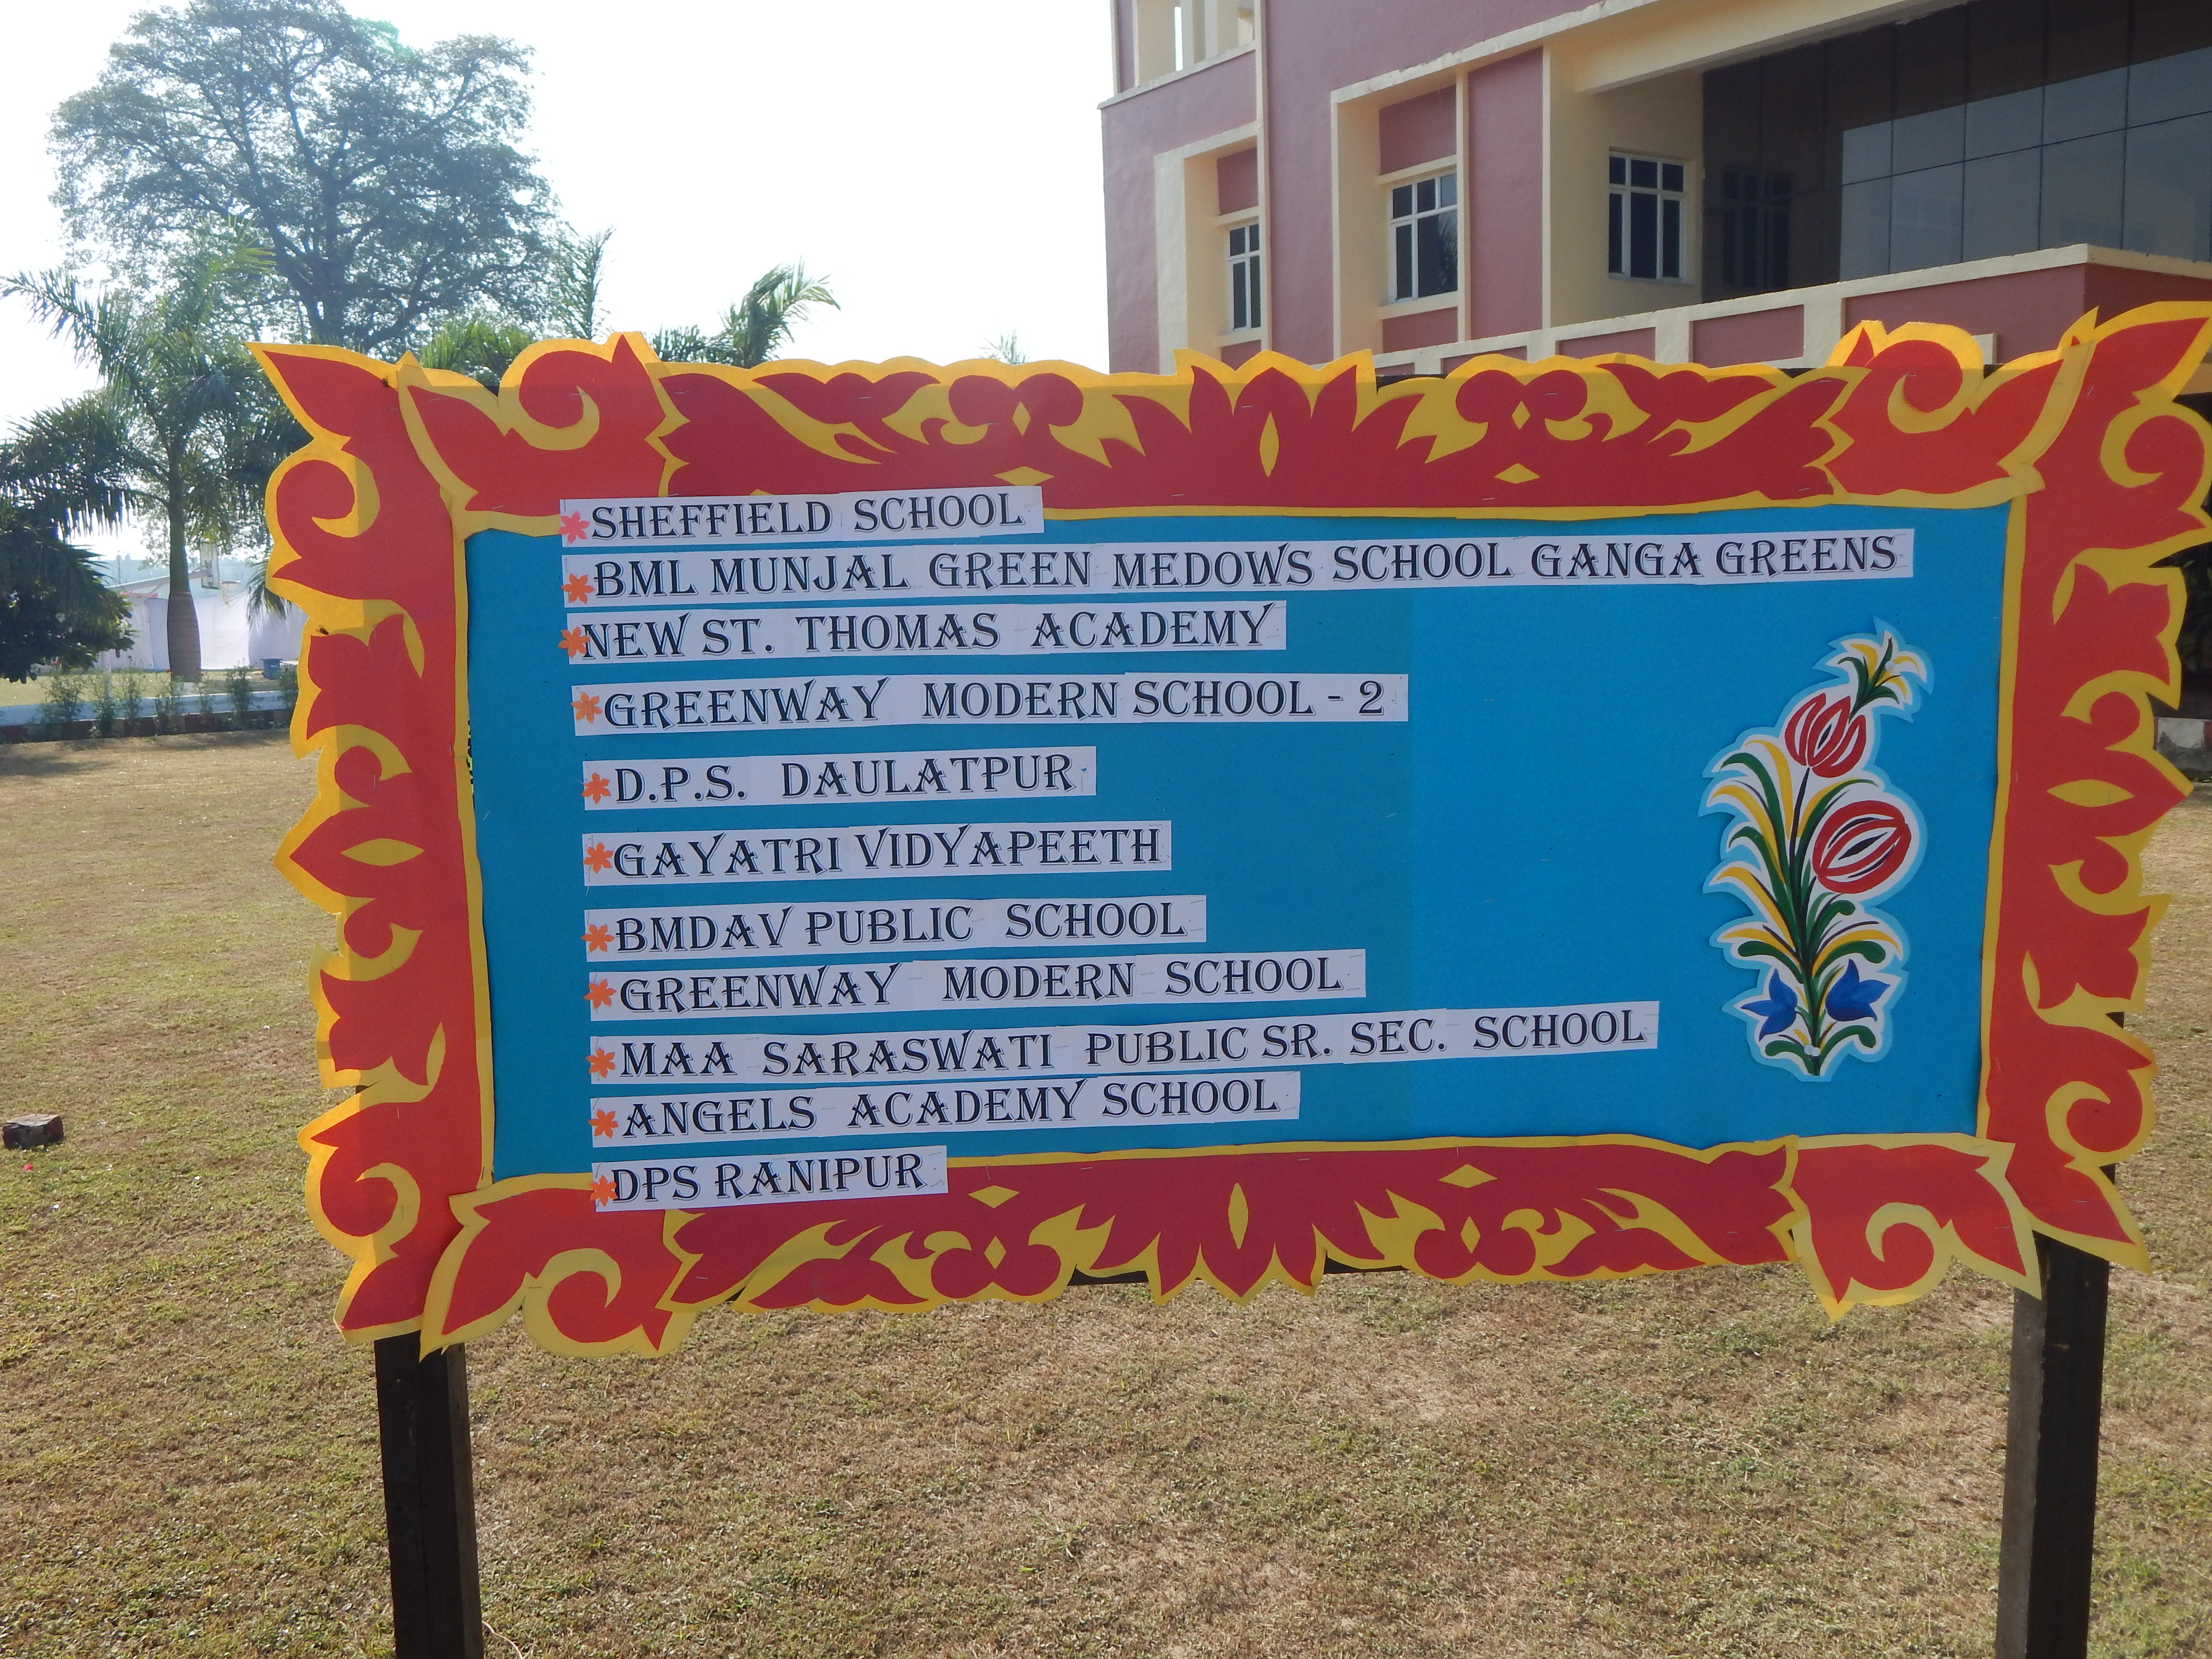 SHEFFIELD SCHOOL
BML MUNJAL GREEN MEDOWS SCHOOL GANGA GREENS
NEW ST. THOMAS ACADEMY
GREENWAY MODERN SCHOOL - 2
D.P.S. DAULATPUR
GAYATRI VIDYAPEETH
BMDAV PUBLIC SCHOOL
GREENWAY MODERN SCHOOL
MAA SARASWATI PUBLIC SR. SEC. SCHOOL
ANGELS ACADEMY SCHOOL
DPS RANIPUR